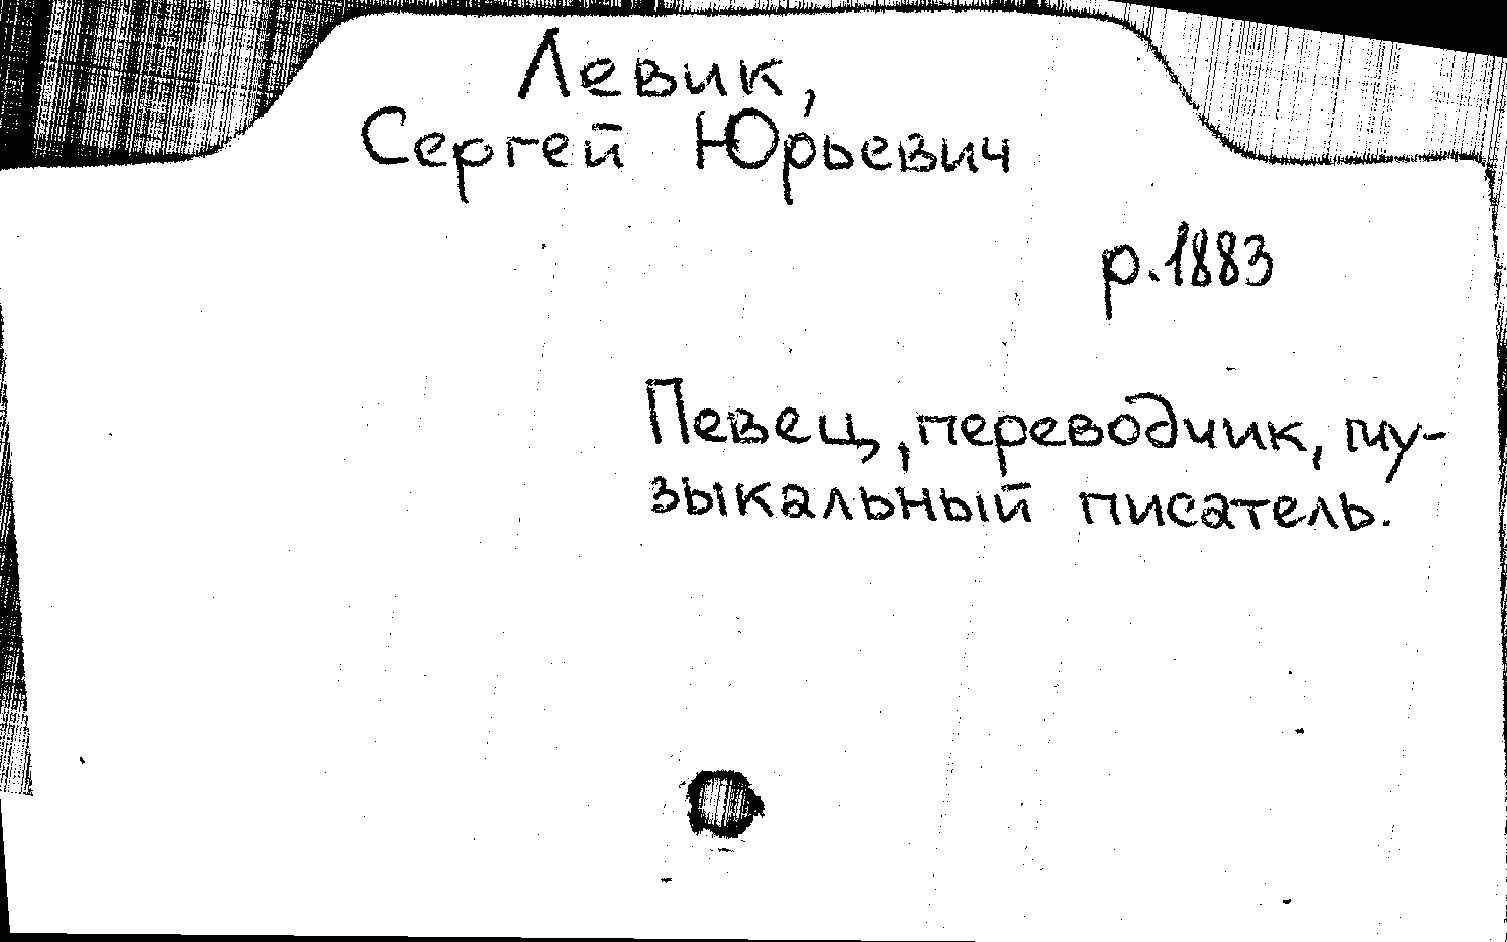 Левик,
Сергей Юрьевич
р.1883
Певец, переводчик, му-
зыкальный писатель.